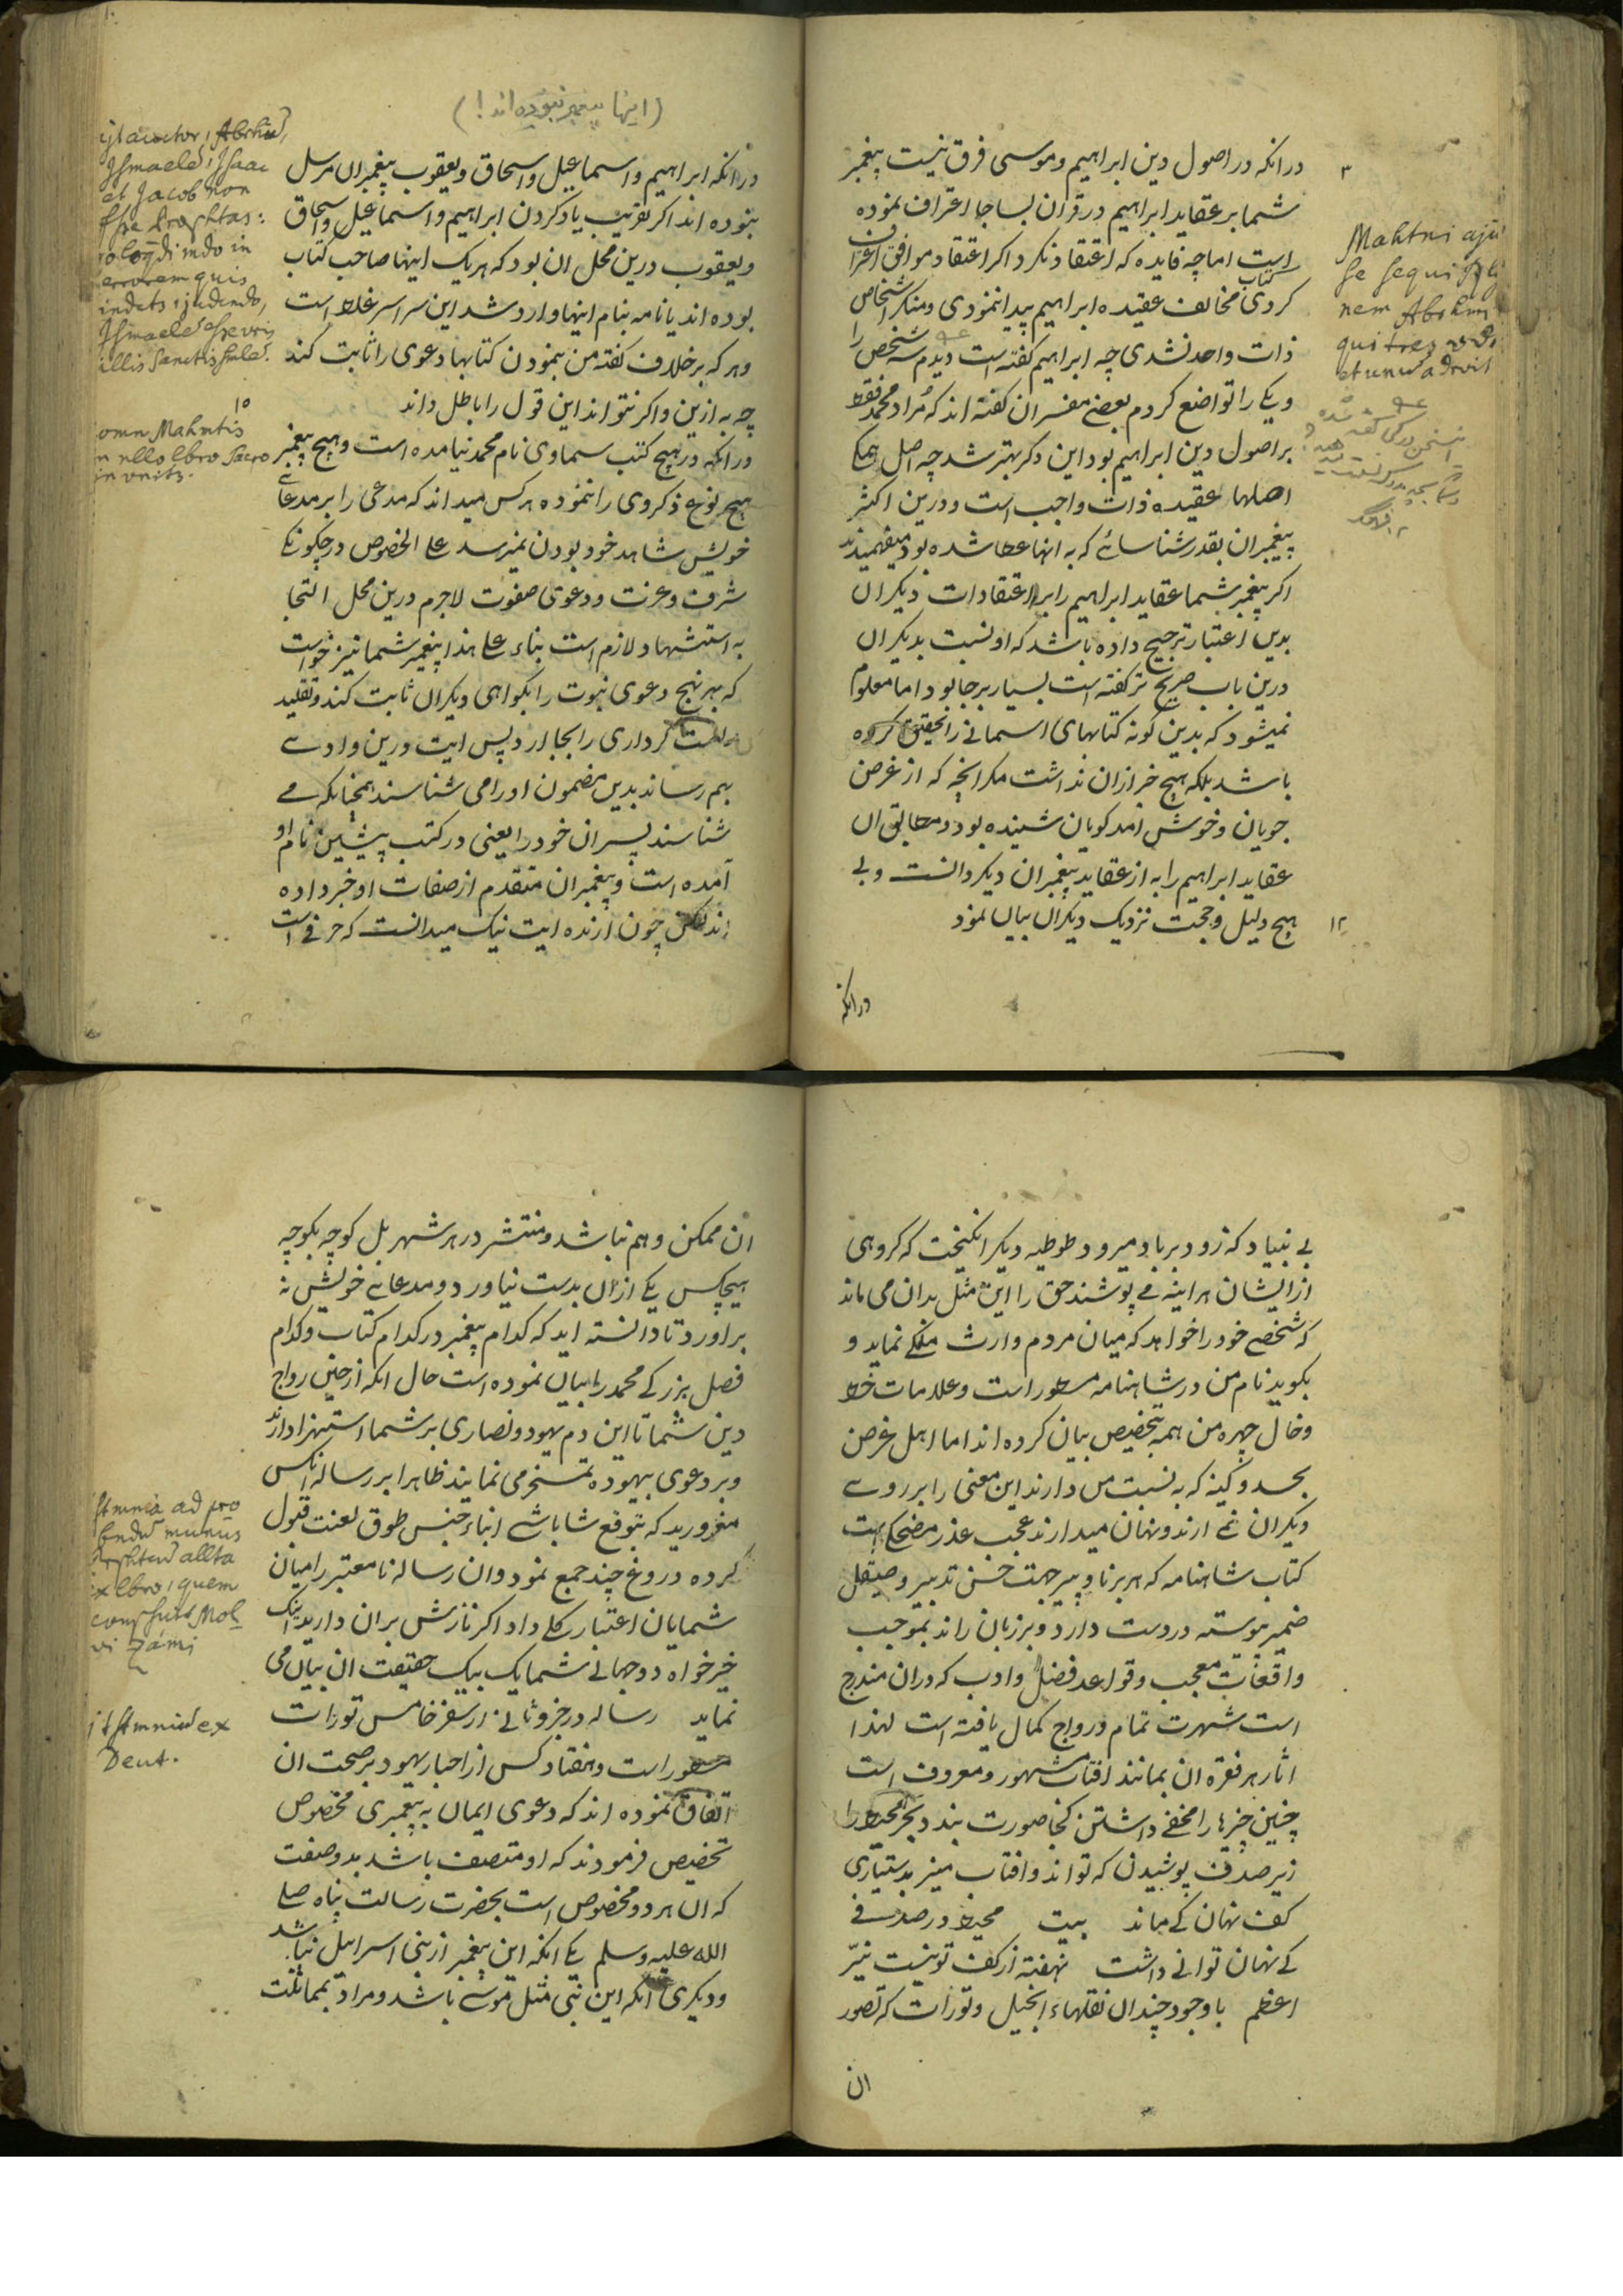 درانکه در اصول دین ابراهیم و موسی فرق نیست پیغمبر
شما بر عقاید ابراهیم در قران بسا جا اعتراف نموده
است اما چه فایده که اعتقاد نکرد اکر اعتقاد موافق اعتراف
کردی مخالف عقیده ابراهیم پیدا ننمودی و منکر اشخاص
ذات واحد نشدی چه ابراهیم کفته است دیدم سه شخص را
و یکی را تواضع کردم بعضی مفسران کفته اند که مراد محمد فقط
بر اصول دین ابراهیم بود این دکر بهتر شد چه اصل همکی
اصلها عقیده ذات واجب است و درین اکثر
پیغمبران بقدر شناسائی که به انها عطا شده بود میفهمیدند
اکر پیغمبر شما عقاید ابراهیم را بر اعتقادات دیکران
بدین اعتبار ترجیح داده باشد که او نسبت بدیکران
درین باب صریح تر کفته است بسیار برجا بود اما معلوم
نمیشود که بدین کونه کتابهای اسمانی را تحقیق کرده
باشد بلکه هیچ خبر ازان نداشت مکر انچه که از غرض
جویان و خوش امد کویان شنیده بود و مطابق ان
عقاید ابراهیم را به از عقاید پیغمبران دیکر دانست و بی
هیچ دلیل و حجت نزدیک دیکران بیان نمود
درانکه
۳
Mahtni aju
se sequi
nem Abrhmi
qui tres vdt
et unu adrvit
۱۲
(اینها پیغمبر نبوده اند!)
درانکه ابراهیم و اسماعیل و اسحاق و یعقوب پیغمبران مرسل
نبوده اند اکر تقریب یاد کردن ابراهیم و اسماعیل و اسحاق
و یعقوب درین محل ان بود که هر یک اینها صاحب کتاب
بوده اند یا نامه بنام اینها وارد شد این سراسر غلط است
و هر که بر خلاف کفته من بنمودن کتابها دعوی را ثابت کند
چه به ازین و اکر نتواند این قول را باطل داند
درانکه در هیچ کتب سماوی نام محمد نیامده است و هیچ پیغمبر
هیچ نوع ذکر وی را ننموده هر کس میداند که مدعی را بر مدعای
خویش شاهد خود بودن نمیرسد علی الخصوص در چکونکی
شرف و عزت و دعوی صفوت لاجرم درین محل التجا
به استشهاد لازم است بناء علی هذا پیغمبر شما نیز خواست
که بهر نهج دعوی نبوت را بکواهی دیکران ثابت کند و تقلید
راست کرداری را بجا ارد پس ایت درین وادی
بهم رساند بدین مضمون او را می شناسند همچنانکه می
شناسند پسران خود را یعنی در کتب پیشین نام او
آمده است و پیغمبران متقدم از صفات او خبر داده
اند لکن چون ارنده ایت نیک میدانست که حرفی است
Abrhu,
Ismaele, Isaac
et Jacob non
esse Prophtas:
errorem quis
Ismaele
illis
۱۵
omn Mahmtis
n ullo lbro sacro
invnits.
بی بنیاد که زود برباد میرود طوطیه دیکر انکیخت که کروهی
از ایشان هراینه می پوشند حق را این مثل بدان می ماند
که شخصی خود را خواهد که میان مردم وارث ملکی نماید و
بکوید نام من در شاهنامه مسطور است و علامات خط
و خال چهره من همه بتخصیص بیان کرده اند اما اهل غرض
بحسد و کینه که به نسبت من دارند این معنی را بر روی
دیکران نمی ارند و نهان میدارند عجب عذر مضحک است
کتاب شاهنامه که هر برنا و پیر جهت حسن تدبیر و صیقل
ضمیر پیوسته در دست دارد و بر زبان راند بموجب
واقعات معجب و قواعد فضل و ادب که دران مندرج
است شهرت تمام و رواج کمال یافته است لهذا
اثار هر فقره ان بمانند افتاب مشهور و معروف است
چنین چیزها را مخفی داشتن کجا صورت بندد بحر محیط را
زیر صدف پوشیدن که تواند و افتاب منیر بدستیاری
کف نهان کی ماند بیت محیط در صدفی
کی نهان توانی داشت نهفته از کف تو نیست نیّر
اعظم با وجود چندان نقلهاء انجیل و تورات که تصور
ان
ان ممکن و هم نباشد و منتشر در هر شهر بل کوچه بکوچه
هیچکس یکی ازان بدست نیاورد و مدعای خویش نه
براورد تا دانسته اید که کدام پیغمبر در کدام کتاب و کدام
فصل بزرکی محمد را بیان نموده است حال انکه از حین رواج
دین شما تا این دم یهود و نصاری بر شما استهزا دارند
و بر دعوی بیهوده تمسخر می نمایند ظاهرا بر رساله انکس
مغرورید که بتوقع شاباشی ابناء جنس طوق لعنت قبول
کرده دروغ چند جمع نمود و ان رساله نامعتبر را میان
شمایان اعتبار کلی داد اکر نازش بران دارید اینک
خیرخواه دوجهانی شما یک بیک حقیقت ان بیان می
نماید رساله در جزو ثانی از سفر خامس تورات
مسطور است و هفتاد کس از احبار یهود بر صحت ان
اتفاق نموده اند که دعوی ایمان به پیغمبری مخصوص
تخصیص فرمودند که او متصف باشد بدو صفت
که ان هر دو مخصوص است بحضرت رسالت پناه صلی
الله علیه و سلم یکی انکه این پیغمبر از بنی اسرائیل نباشد
و دیکری انکه این نبی مثل موسی باشد و مراد بمماثلت
ad pro
munus
allta
ex lbro, quem
Mol
vi Zámi
ex
Deut.